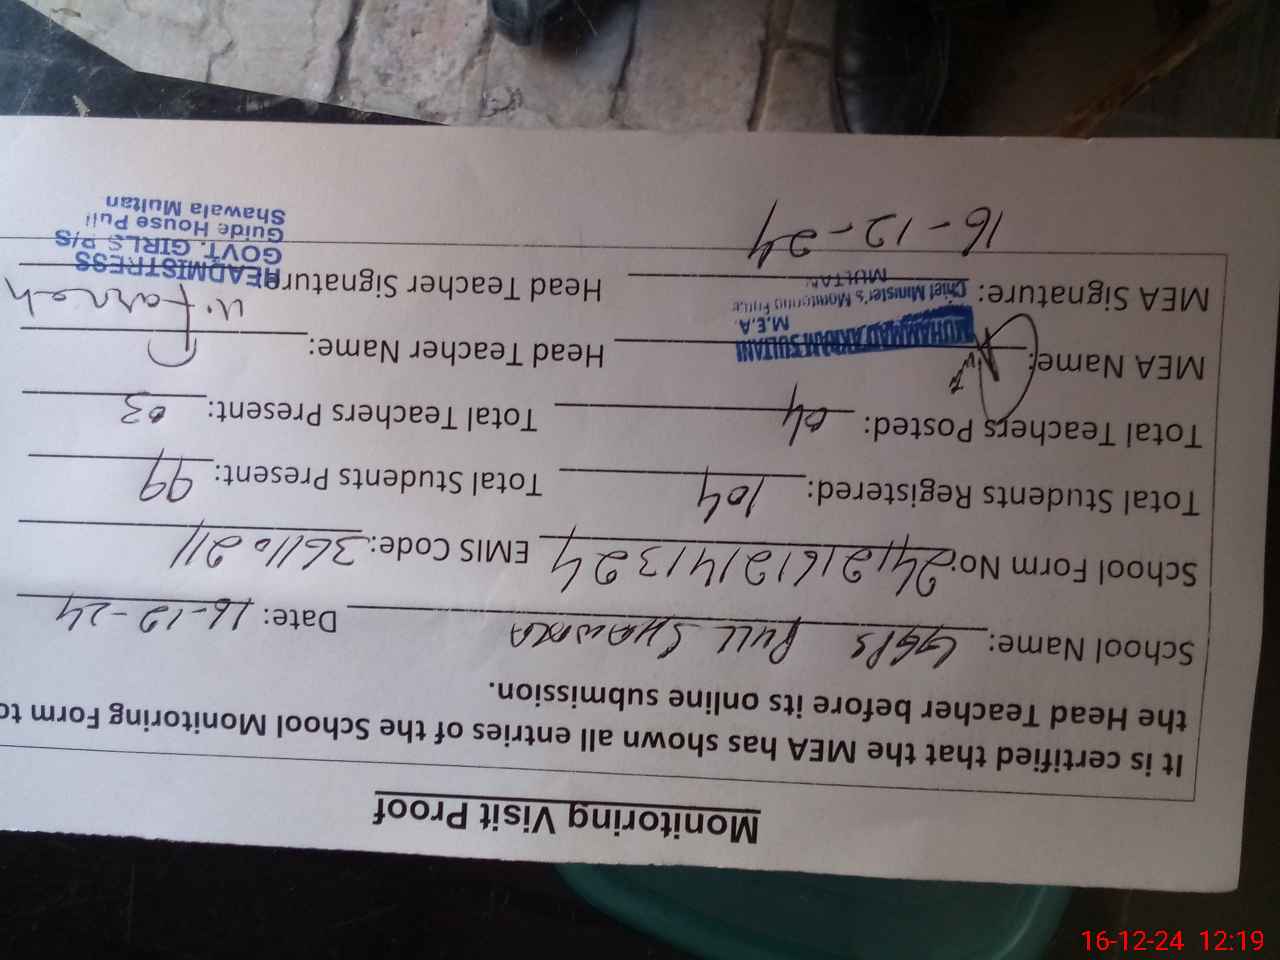 Monitoring Visit Proof
It is certified that the MEA has shown all entries of the School Monitoring Form to
the Head Teacher before its online submission.
School Name: GGPS PULL SHAWALA Date: 16-12-24
School Form No: EMIS Code: 36110211
Total Students Registered: 104 Total Students Present: 99
Total Teachers Posted: 04 Total Teachers Present: 03
MEA Name: MUHAMMAD AKRAM SULTANI Head Teacher Name:
M.E.A.
Chief Minister's Monitoring Force
MULTAN
MEA Signature: Head Teacher Signature: Farrah
16-12-24
HEADMISTRESS
GOVT. GIRLS P/S
Guide House Pull
Shawala Multan
16-12-24 12:19